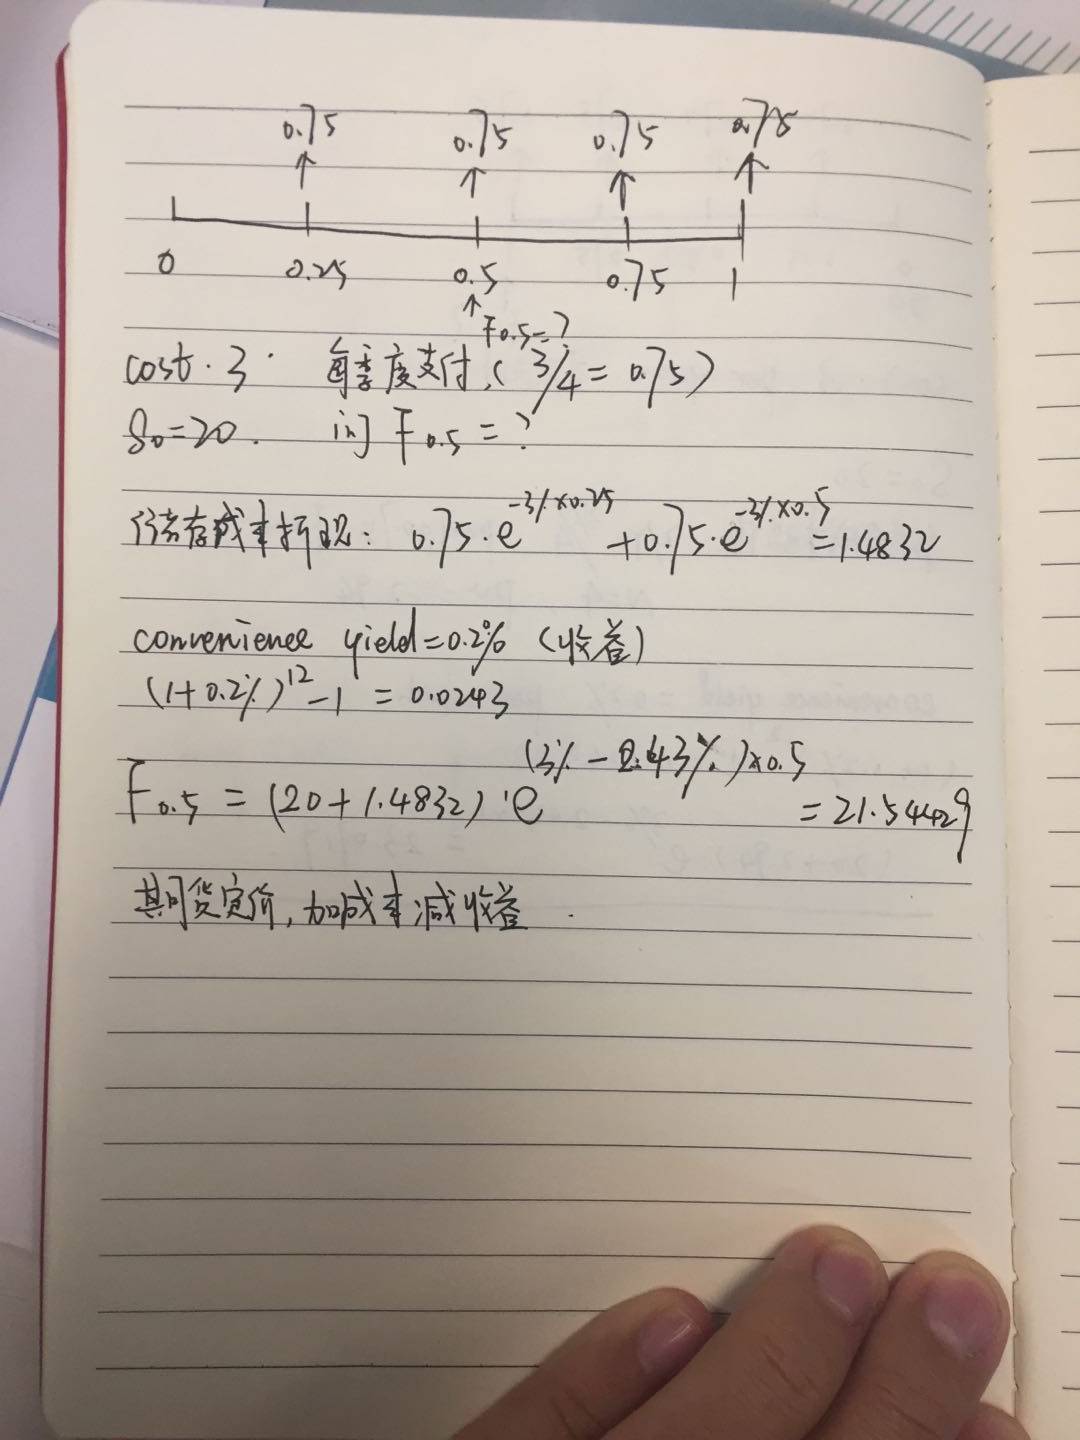 0.75 0.75 0.75 0.75
0 0.25 0.5 0.75 1
F0.5=?
cost·3· 每季度支付,(3/4=0.75)
S₀=20. 问F0.5=?
储存成本折现: 0.75·e^-3%×0.25+0.75·e^-3%×0.5=1.4832
convenience yield=0.2% (收益)
(1+0.2%)^12-1=0.0243
F0.5=(20+1.4832)·e^(3%-2.43%)×0.5=21.54429
期货定价,加成本减收益.